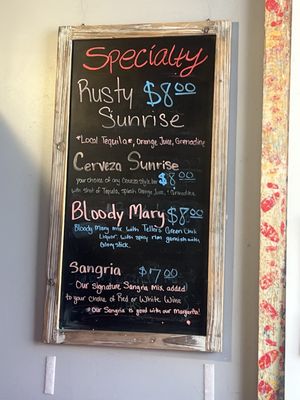 Specialty
Rusty $8.00
Sunrise
*Local Tequila*, Orange Juice, Grenadine
Cerveza Sunrise
Your choice of any Cerveza style beer $8.00
with shot of Tequila, splash Orange Juice, & Grenadine
Bloody Mary $8.00
Bloody Mary mix with Tellers Green Chili
Liquor with spicy rim garnished with
Celery stick.
Sangria $7.00
Our Signature Sangria mix added
to your choice of Red or White Wine
* Our Sangria is good with our Margarita!